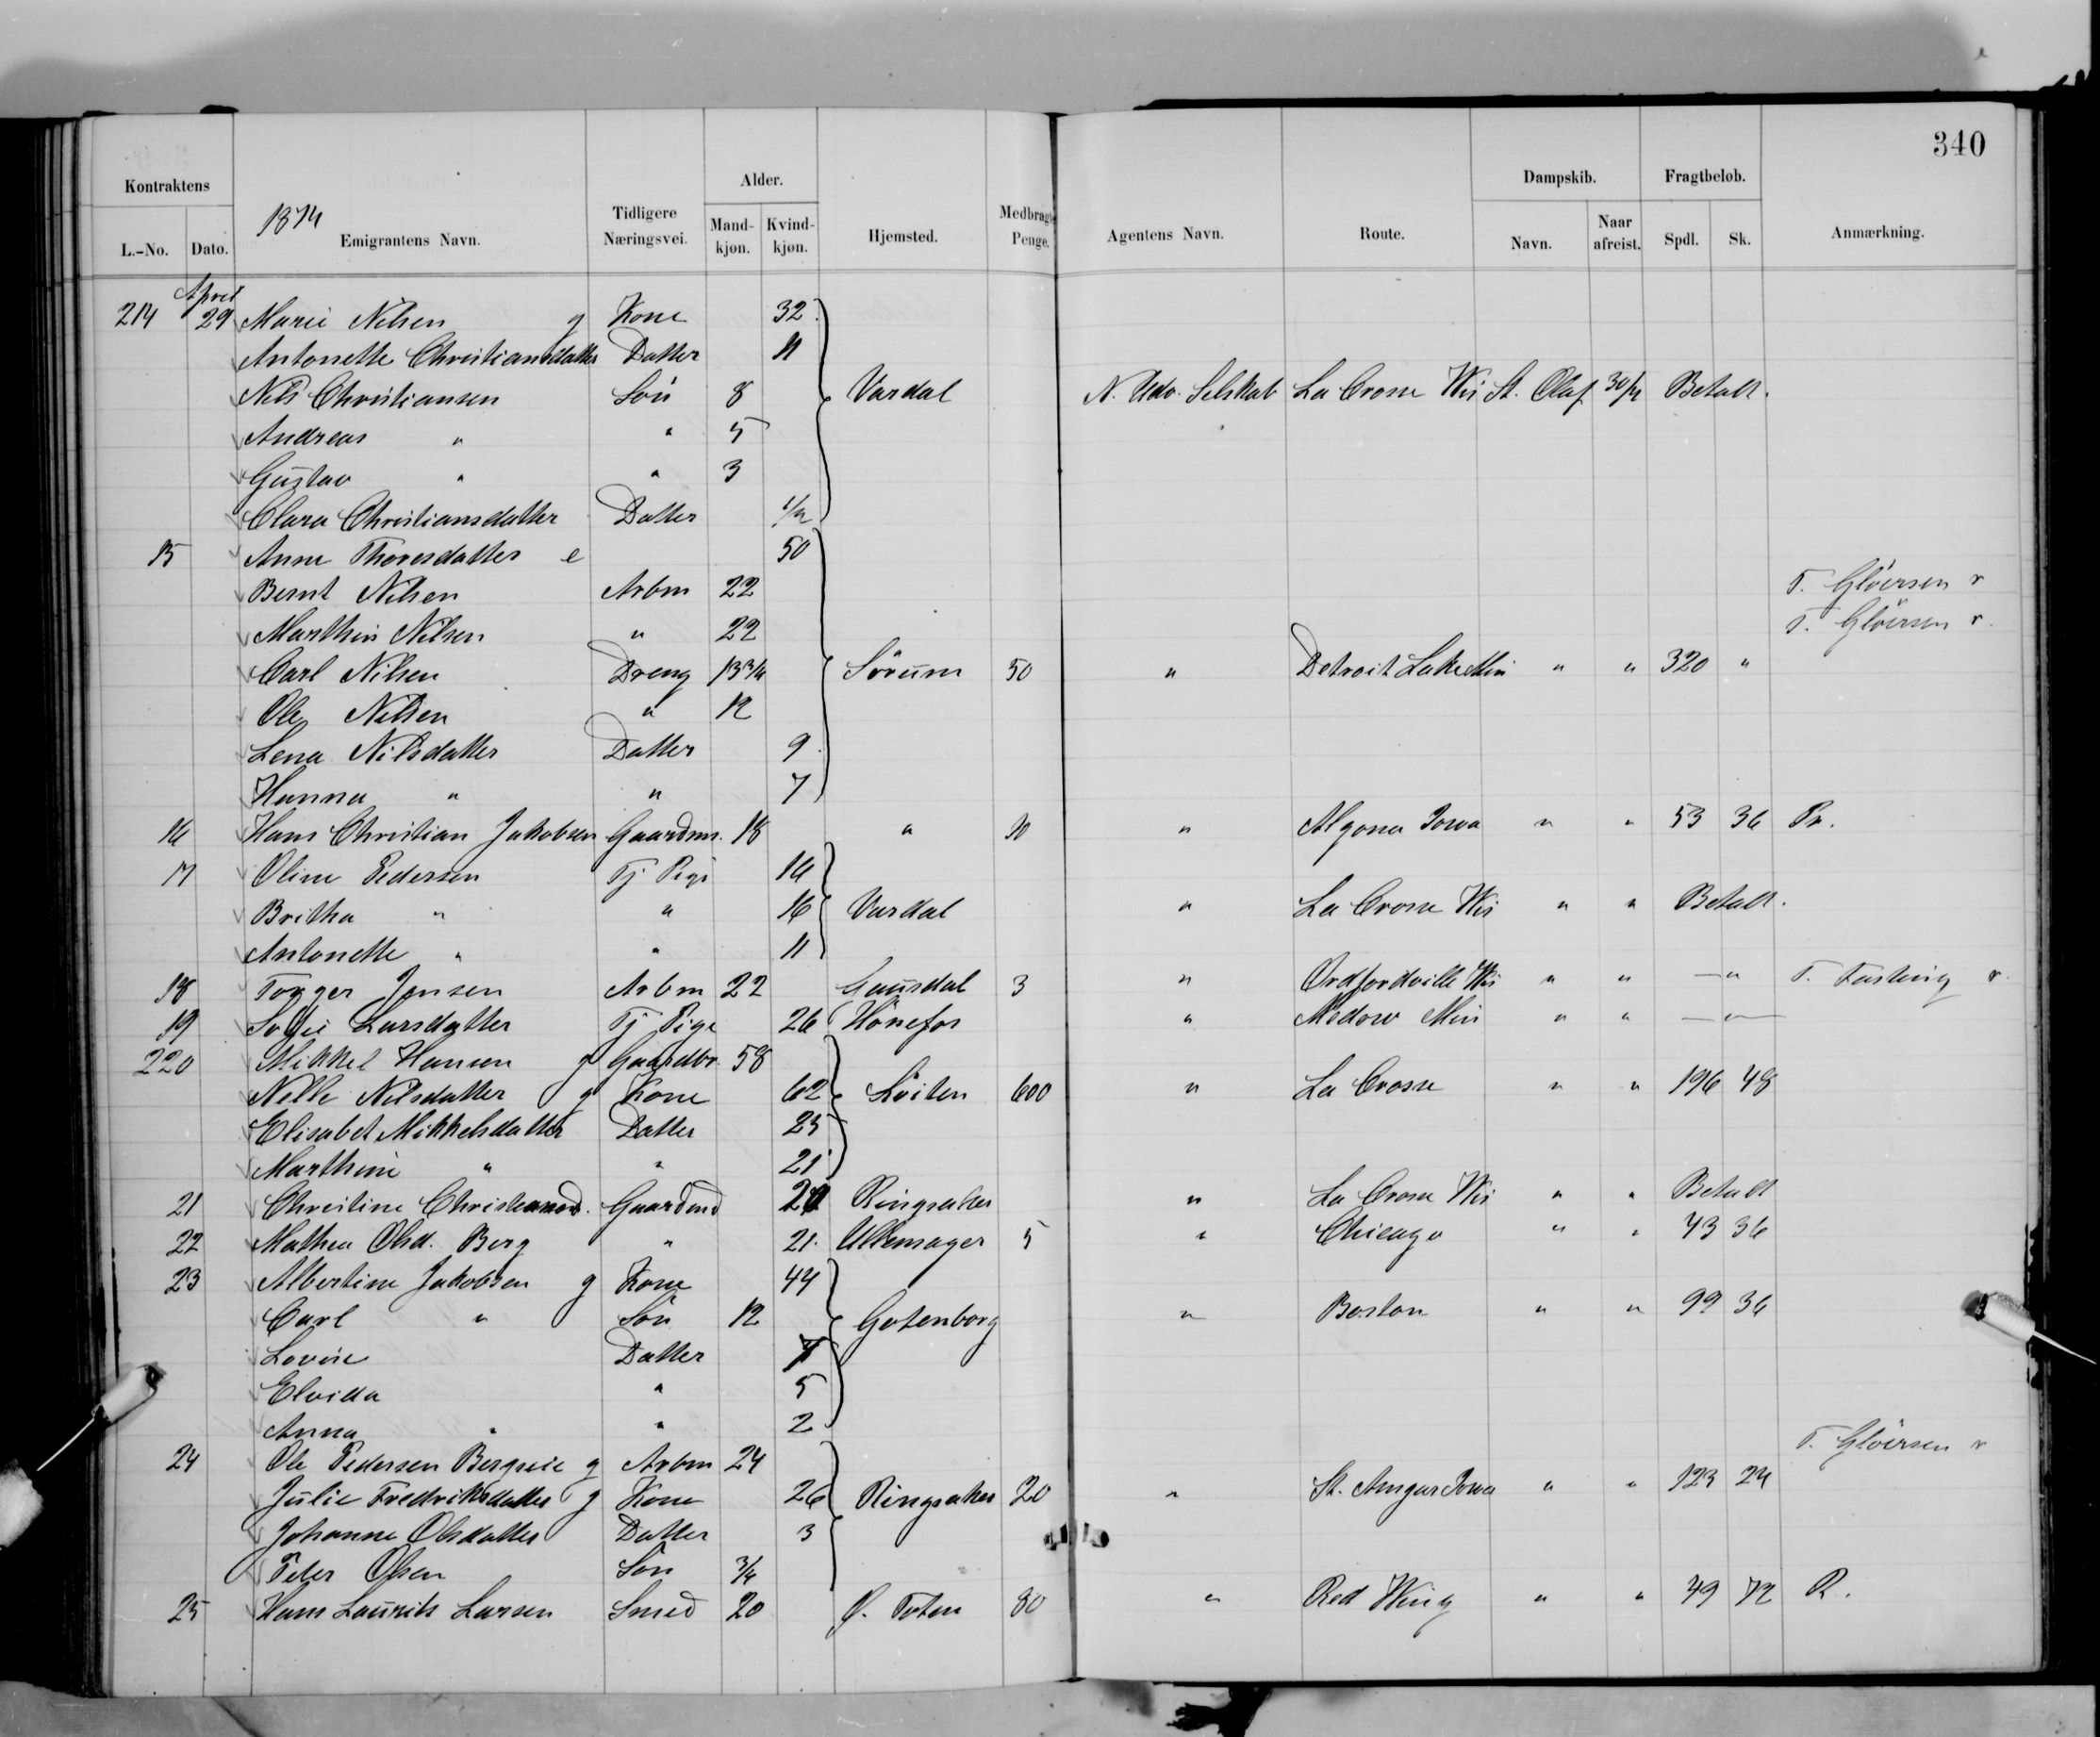 340
Kontraktens Alder. Dampskib. Fragtbeløb.
L.-No. Dato. 1874 Emigrantens Navn. Tidligere Næringsvei. Mand-kjøn. Kvind-kjøn. Hjemsted. Medbragte Penge. Agentens Navn. Route. Navn. Naar afreist. Spdl. Sk. Anmærkning.
April
214 29 Marie Nilsen g Kone 32
Antonette Christiansdatter Datter 11
Nils Christiansen Søn 8 Vardal N. Udv. Selskab La Crosse Wis St. Olaf 30/4 Betalt.
Andreas " " 5
Gustav " " 3
Clara Christiansdatter Datter 1/2
15 Anne Thoresdatter e 50
Bernt Nilsen Arbm 22 T. Gløersen r
Marthin Nilsen " 22 T. Gløersen r.
Carl Nilsen Dreng 13 3/4 Sørum 50 " Detroit Lake Min " " 320 "
Ole Nilsen " 12
Lena Nilsdatter Datter 9
Hanna " " 7
16 Hans Christian Jakobsen Gaardms. 18 " 10 " Algona Iowa " " 53 36 Pr.
17 Oline Pedersen Tj Pige 14
Britha " " 16 Vardal " La Crosse Wis " " Betalt.
Antonette " " 11
18 Torger Jensen Arbm 22 Gausdal 3 " Ordfordville Wis " " —"— T. Fasting r.
19 Sofie Larsdatter Tj Pige 26 Hønefos " Medow Min " " —"—
220 Mikkel Hansen g Gaardbr. 58
Nelle Nilsdatter g Kone 62 Løiten 600 " La Crosse " " 196 48
Elisabet Mikkelsdatter Datter 25
Marthine " " 21
21 Christine Christiansd. Gaardmd Ringsaker " La Crosse Wis " " Betalt
22 Mathea Olsd. Berg " 21 Ullensager 5 " Chicago " " 43 36
23 Albertine Jakobsen g Kone 44
Carl " Søn 12 Gotenborg " Boston " " 99 36
Lovise Datter 7
Elvida " 5
Anna " " 2
24 Ole Pedersen Bergseie g Arbm 24 T. Gløersen r
Julie Fredriksdatter g Kone 26 Ringsaker 20 " St. Ansgar Iowa " " 123 24
Johanne Olsdatter Datter 3
Peter Olsen Søn 3/4
25 Hans Laurits Larsen Smed 20 Ø. Toten 80 " Red Wing " " 49 72 R.